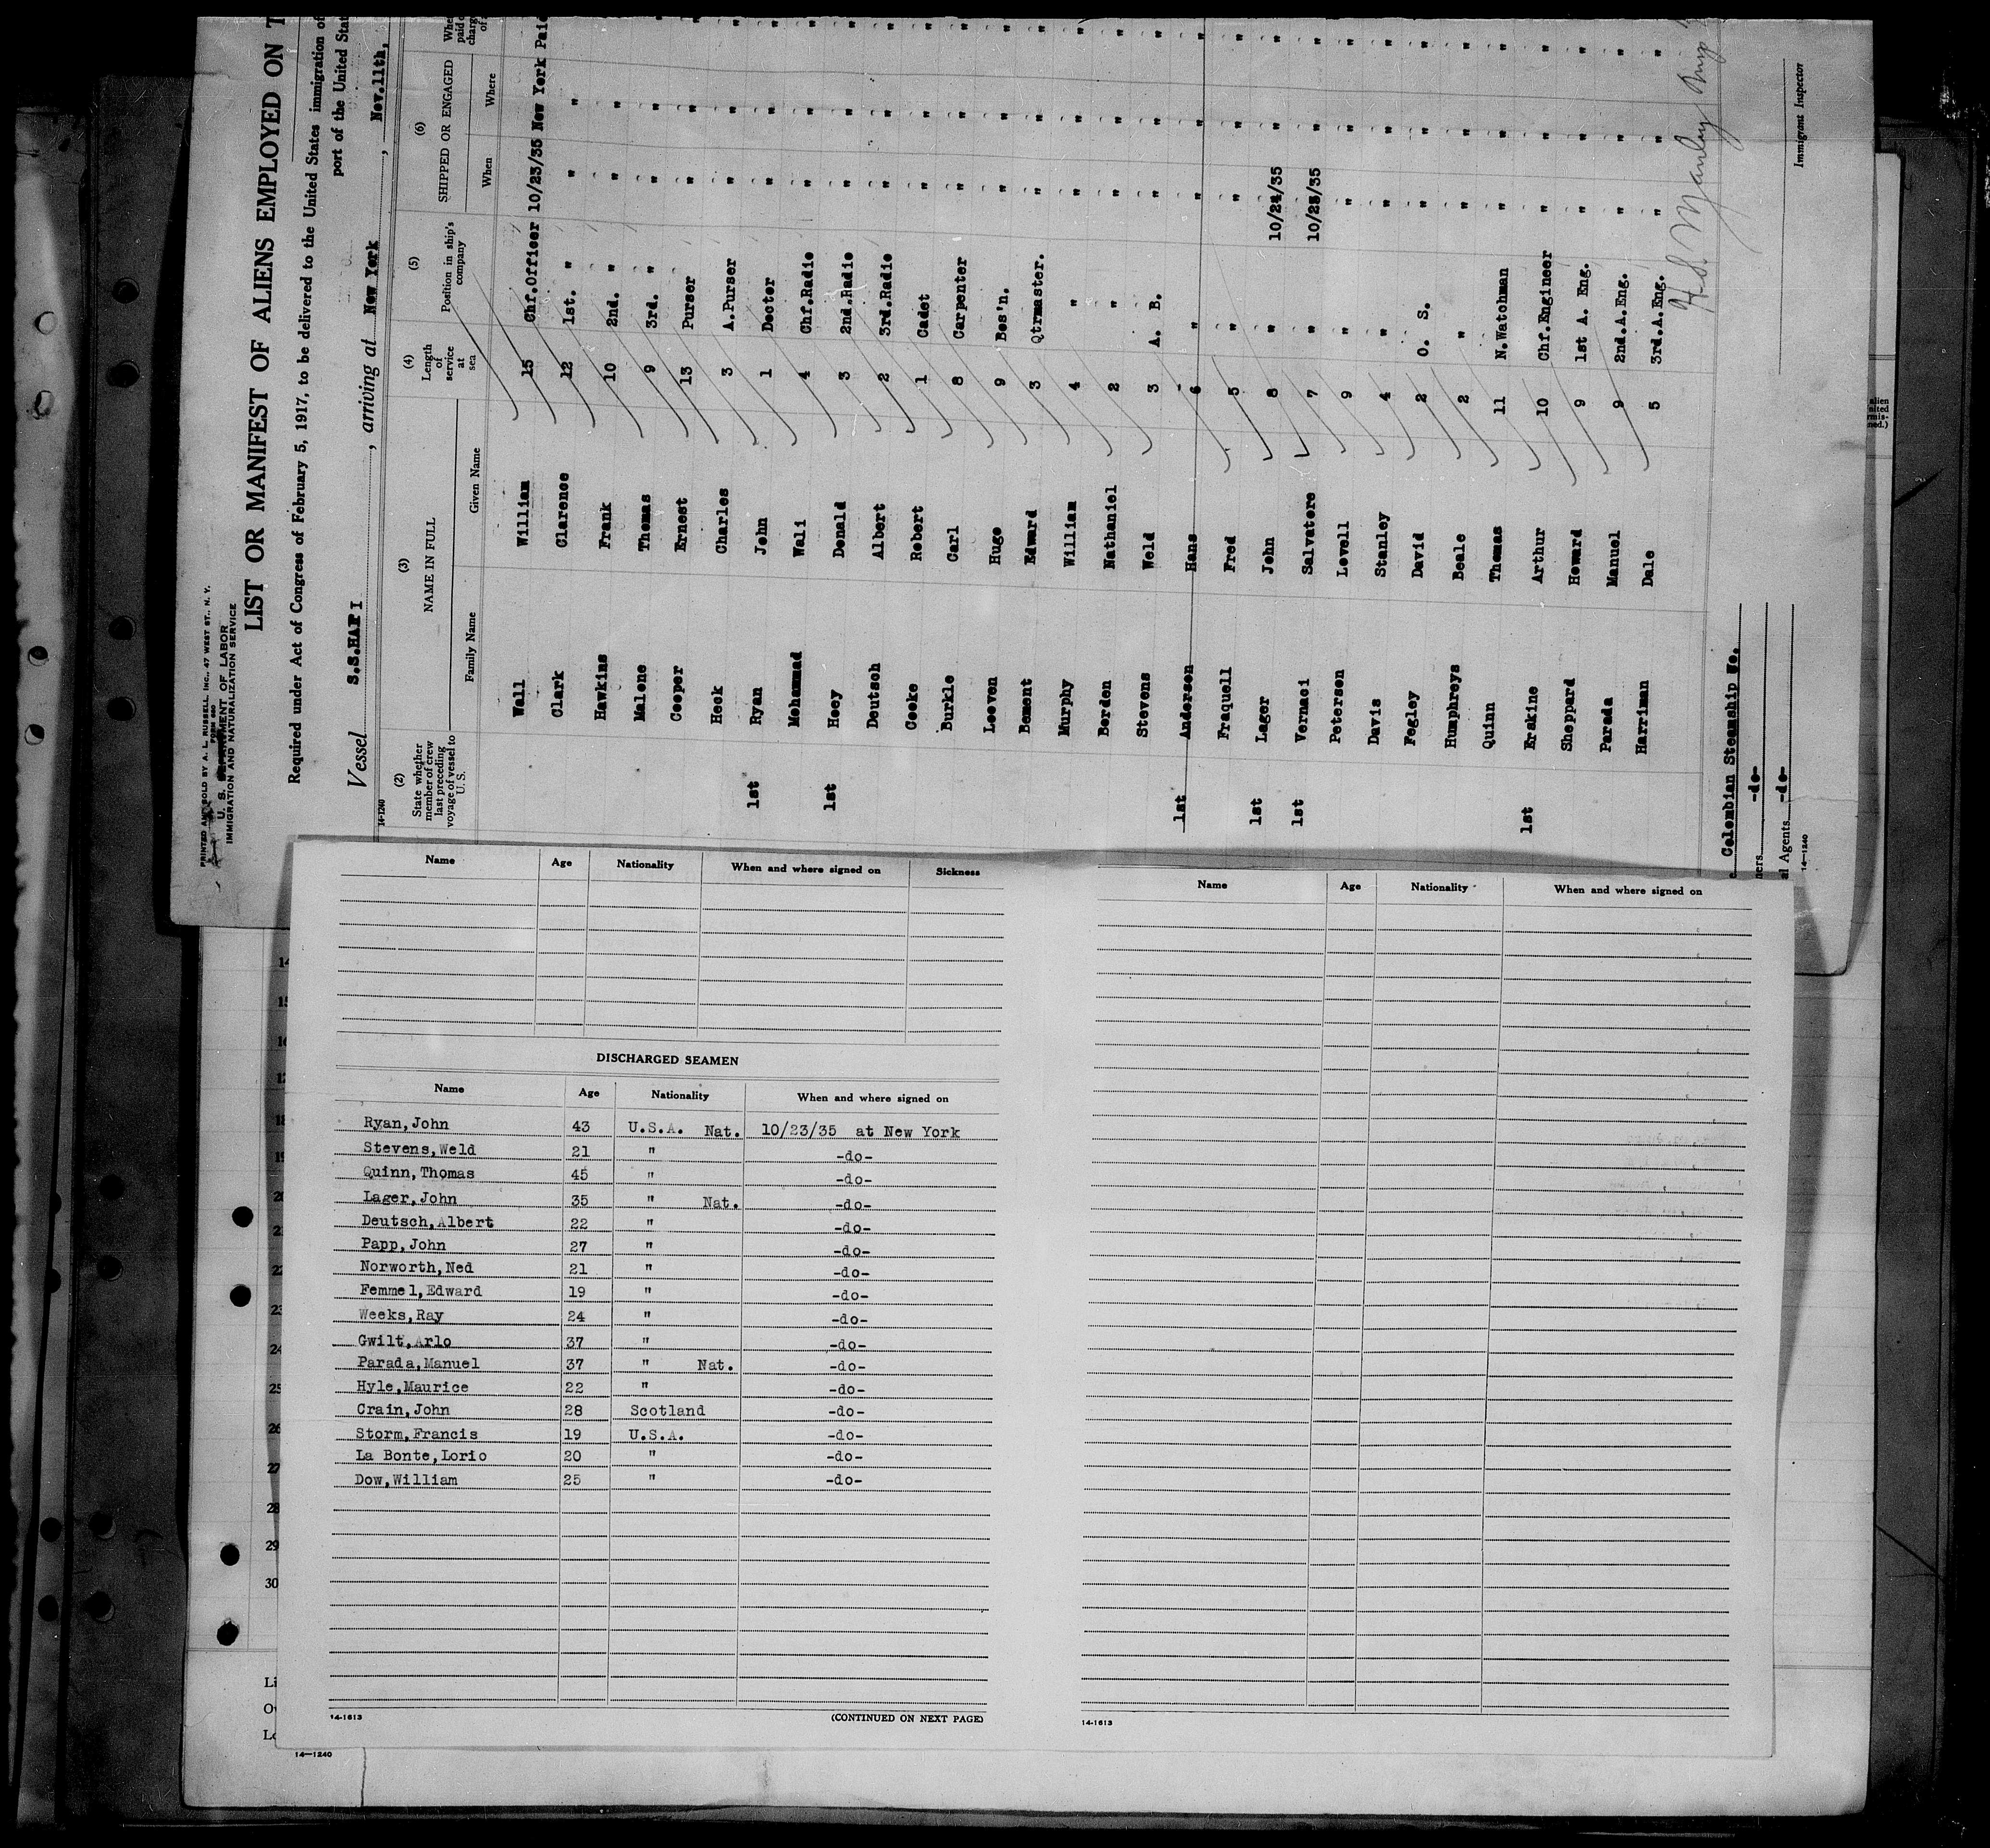 PRINTED AND SOLD BY A. L. RUSSELL, INC., 47 WEST ST., N. Y.
FORM 680
U. S. DEPARTMENT OF LABOR
IMMIGRATION AND NATURALIZATION SERVICE
LIST OR MANIFEST OF ALIENS EMPLOYED ON T
Required under Act of Congress of February 5, 1917, to be delivered to the United States immigration of
port of the United Stat
Vessel S.S.HAITI, arriving at New York, Nov.11th,
14-1240
(2) (3) (4) (5) (6)
State whether member of crew last preceding voyage of vessel to U. S. NAME IN FULL Length of service at sea Position in ship's company SHIPPED OR ENGAGED
Family Name Given Name When Where
Wall William 15 Chf.Officer 10/23/35 New York Paid
Clark Clarence 12 1st. " " "
Hawkins Frank 10 2nd. " " " "
Malone Thomas 9 3rd. " " " "
Cooper Ernest 13 Purser " " "
Heck Charles 3 A.Purser " " "
1st Ryan John 1 Doctor " " "
Mohammad Wali 4 Chf.Radio " " "
1st Hoey Donald 3 2nd.Radio " " "
Deutsch Albert 2 3rd.Radio " " "
Cooke Robert 1 Cadet " " "
Burkle Carl 8 Carpenter " " "
Leeven Hugo 9 Bos'n. " " "
Bement Edward 3 Qtrmaster. " " "
Murphy William 4 " " " "
Borden Nathaniel 2 " " " "
Stevens Weld 3 A. B. " " "
1st Andersen Hans 6 " " " "
Fraquell Fred 5 " " " "
1st Lager John 8 " 10/24/35 " "
1st Vernaci Salvatore 7 " 10/25/35 " "
Petersen Lovell 9 " " " "
Davis Stanley 4 " " " "
Fogley David 2 O. S. " " "
Humphreys Beale 2 " " " "
Quinn Thomas 11 N.Watchman " " "
1st Erskine Arthur 10 Chf.Engineer " " "
Sheppard Howard 9 1st A. Eng. " " "
Parada Manuel 9 2nd.A.Eng. " " "
Harriman Dale 5 3rd.A.Eng. " " "
Colombian Steamship Co.
ners -do-
al Agents -do-
14-1240
Immigrant Inspector
Name Age Nationality When and where signed on Sickness
DISCHARGED SEAMEN
Name Age Nationality When and where signed on
Ryan,John 43 U.S.A. Nat. 10/23/35 at New York
Stevens,Weld 21 " -do-
Quinn,Thomas 45 " -do-
Lager,John 35 " Nat. -do-
Deutsch,Albert 22 " -do-
Papp,John 27 " -do-
Norworth,Ned 21 " -do-
Femmel,Edward 19 " -do-
Weeks,Ray 24 " -do-
Gwilt,Arlo 37 " -do-
Parada,Manuel 37 " Nat. -do-
Hyle,Maurice 22 " -do-
Crain,John 28 Scotland -do-
Storm,Francis 19 U.S.A. -do-
La Bonte,Lorio 20 " -do-
Dow,William 25 " -do-
14-1613 (CONTINUED ON NEXT PAGE)
Name Age Nationality When and where signed on
14-1613
14
15
16
17
18
19
20
21
22
23
24
25
26
27
28
29
30
14-1240